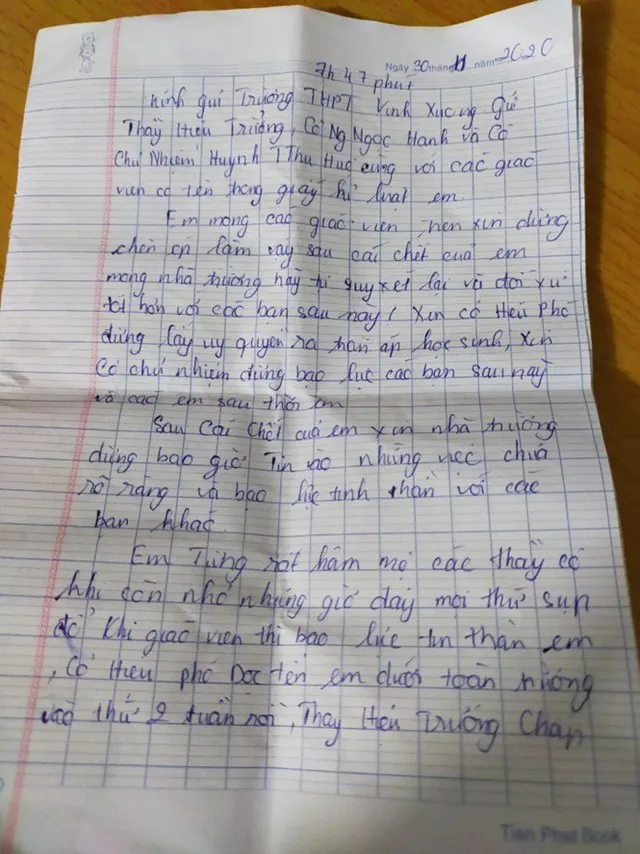 Ngày 30 tháng 11 năm 2020
7h 47 phut
Kính gửi Trường THPT Vĩnh Xương Gửi
Thầy Hiệu Trưởng, Cô Ng Ngọc Hanh và Cô
Chủ Nhiệm Huynh TThu Huệ cùng với các giáo
viên có tên trong giấy kỉ luật em.
Em mong các giáo viên, nen xin dừng
chèn ép lầm vay sau cái chết cuả em
mong nhà trường hãy tự quyết lại và đối xử
tốt hơn với các bạn sau này! Xin cô Hiệu Phó
đừng lấy uy quyền ra đàn áp học sinh, Xin
Cô chủ nhiệm đừng bạo lực các bạn sau này
và các em sau thời em
Sau Cái Chết cuả em xin nhà trường
đừng bao giờ Tin vào những việc chưa
rõ ràng và bạo lực tinh thần với các
bạn khác.
Em Từng rất hâm mộ các thầy cô
khi còn nhỏ nhưng giờ đây mọi thứ sụp
đổ Khi giáo viên thì bạo lực tin thần em
, Cô Hiệu phó Đọc tên em dưới toàn trường
vào thứ 2 tuần rồi, Thay Hiệu Trưởng Chấp
Tien Phat Book